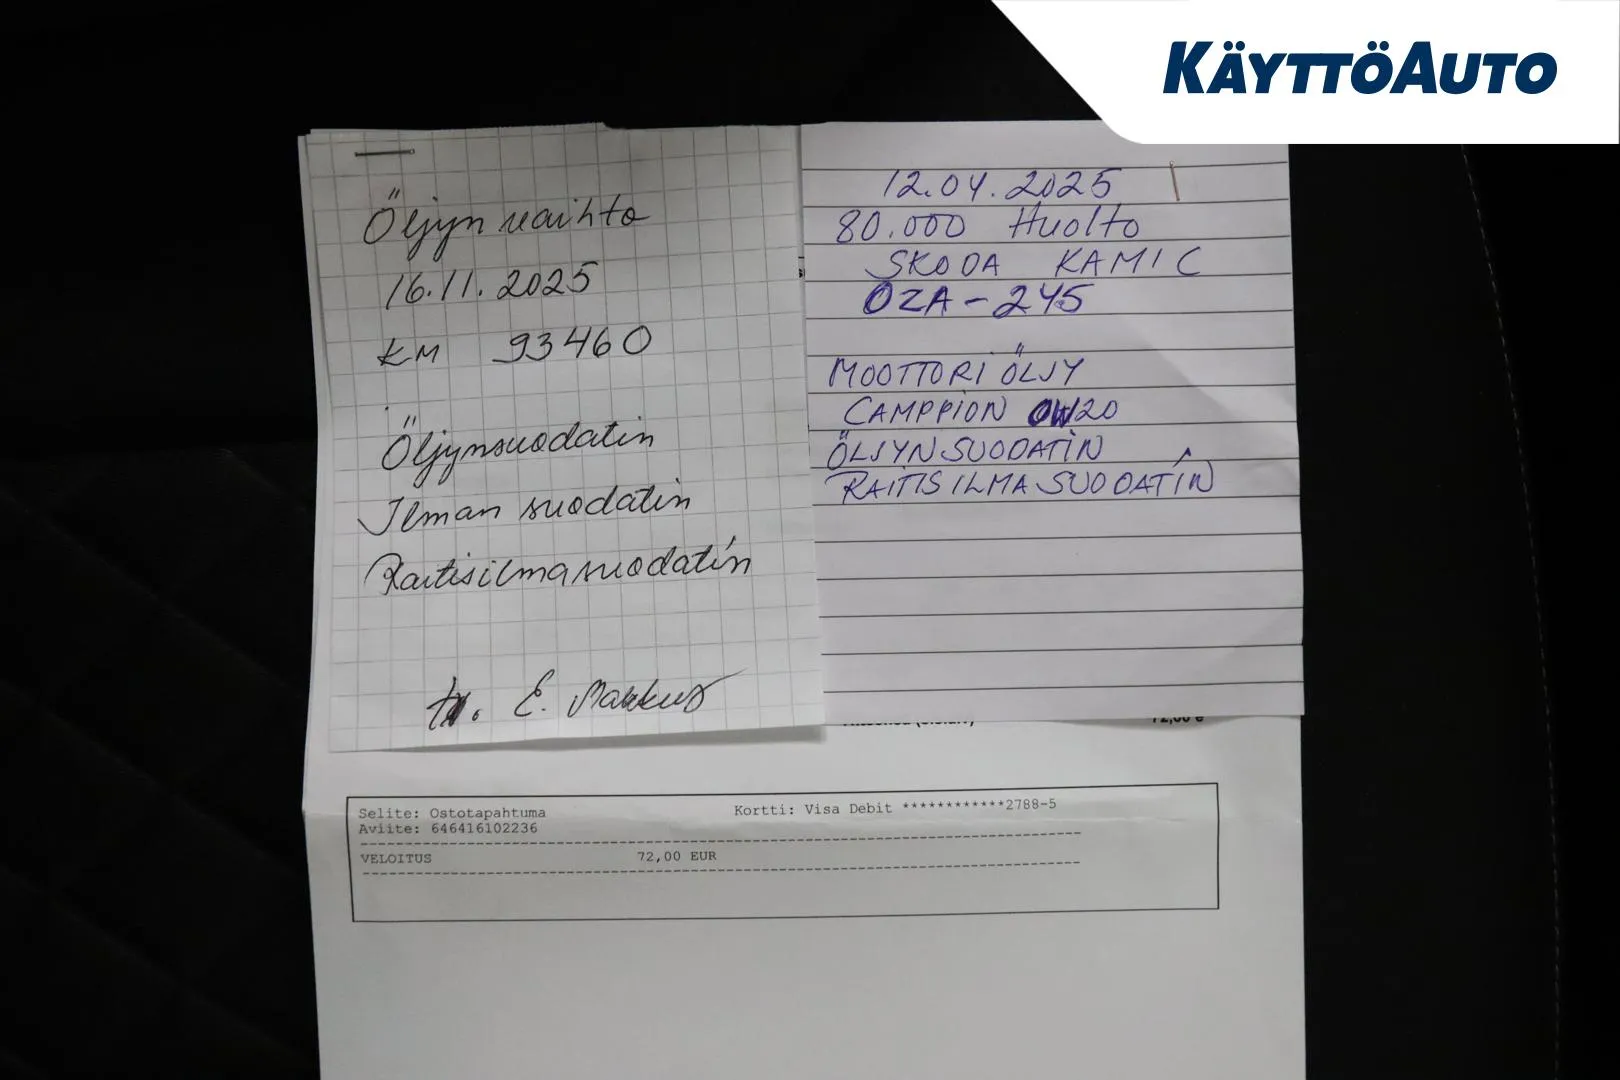 KÄYTTÖAUTO
Öljyn vaihto
16.11.2025
KM 93460
Öljynsuodatin
Ilman suodatin
Raitisilmasuodatin
E. Markus
12.04.2025
80.000 HUOLTO
SKODA KAMIC
OZA-245
MOOTTORI ÖLJY
CAMPPION 0W20
ÖLJYNSUODATIN
RAITIS ILMA SUODATIN
72,00 €
Selite: Ostotapahtuma
Kortti: Visa Debit ************2788-5
Aviite: 646416102236
VELOITUS 72,00 EUR